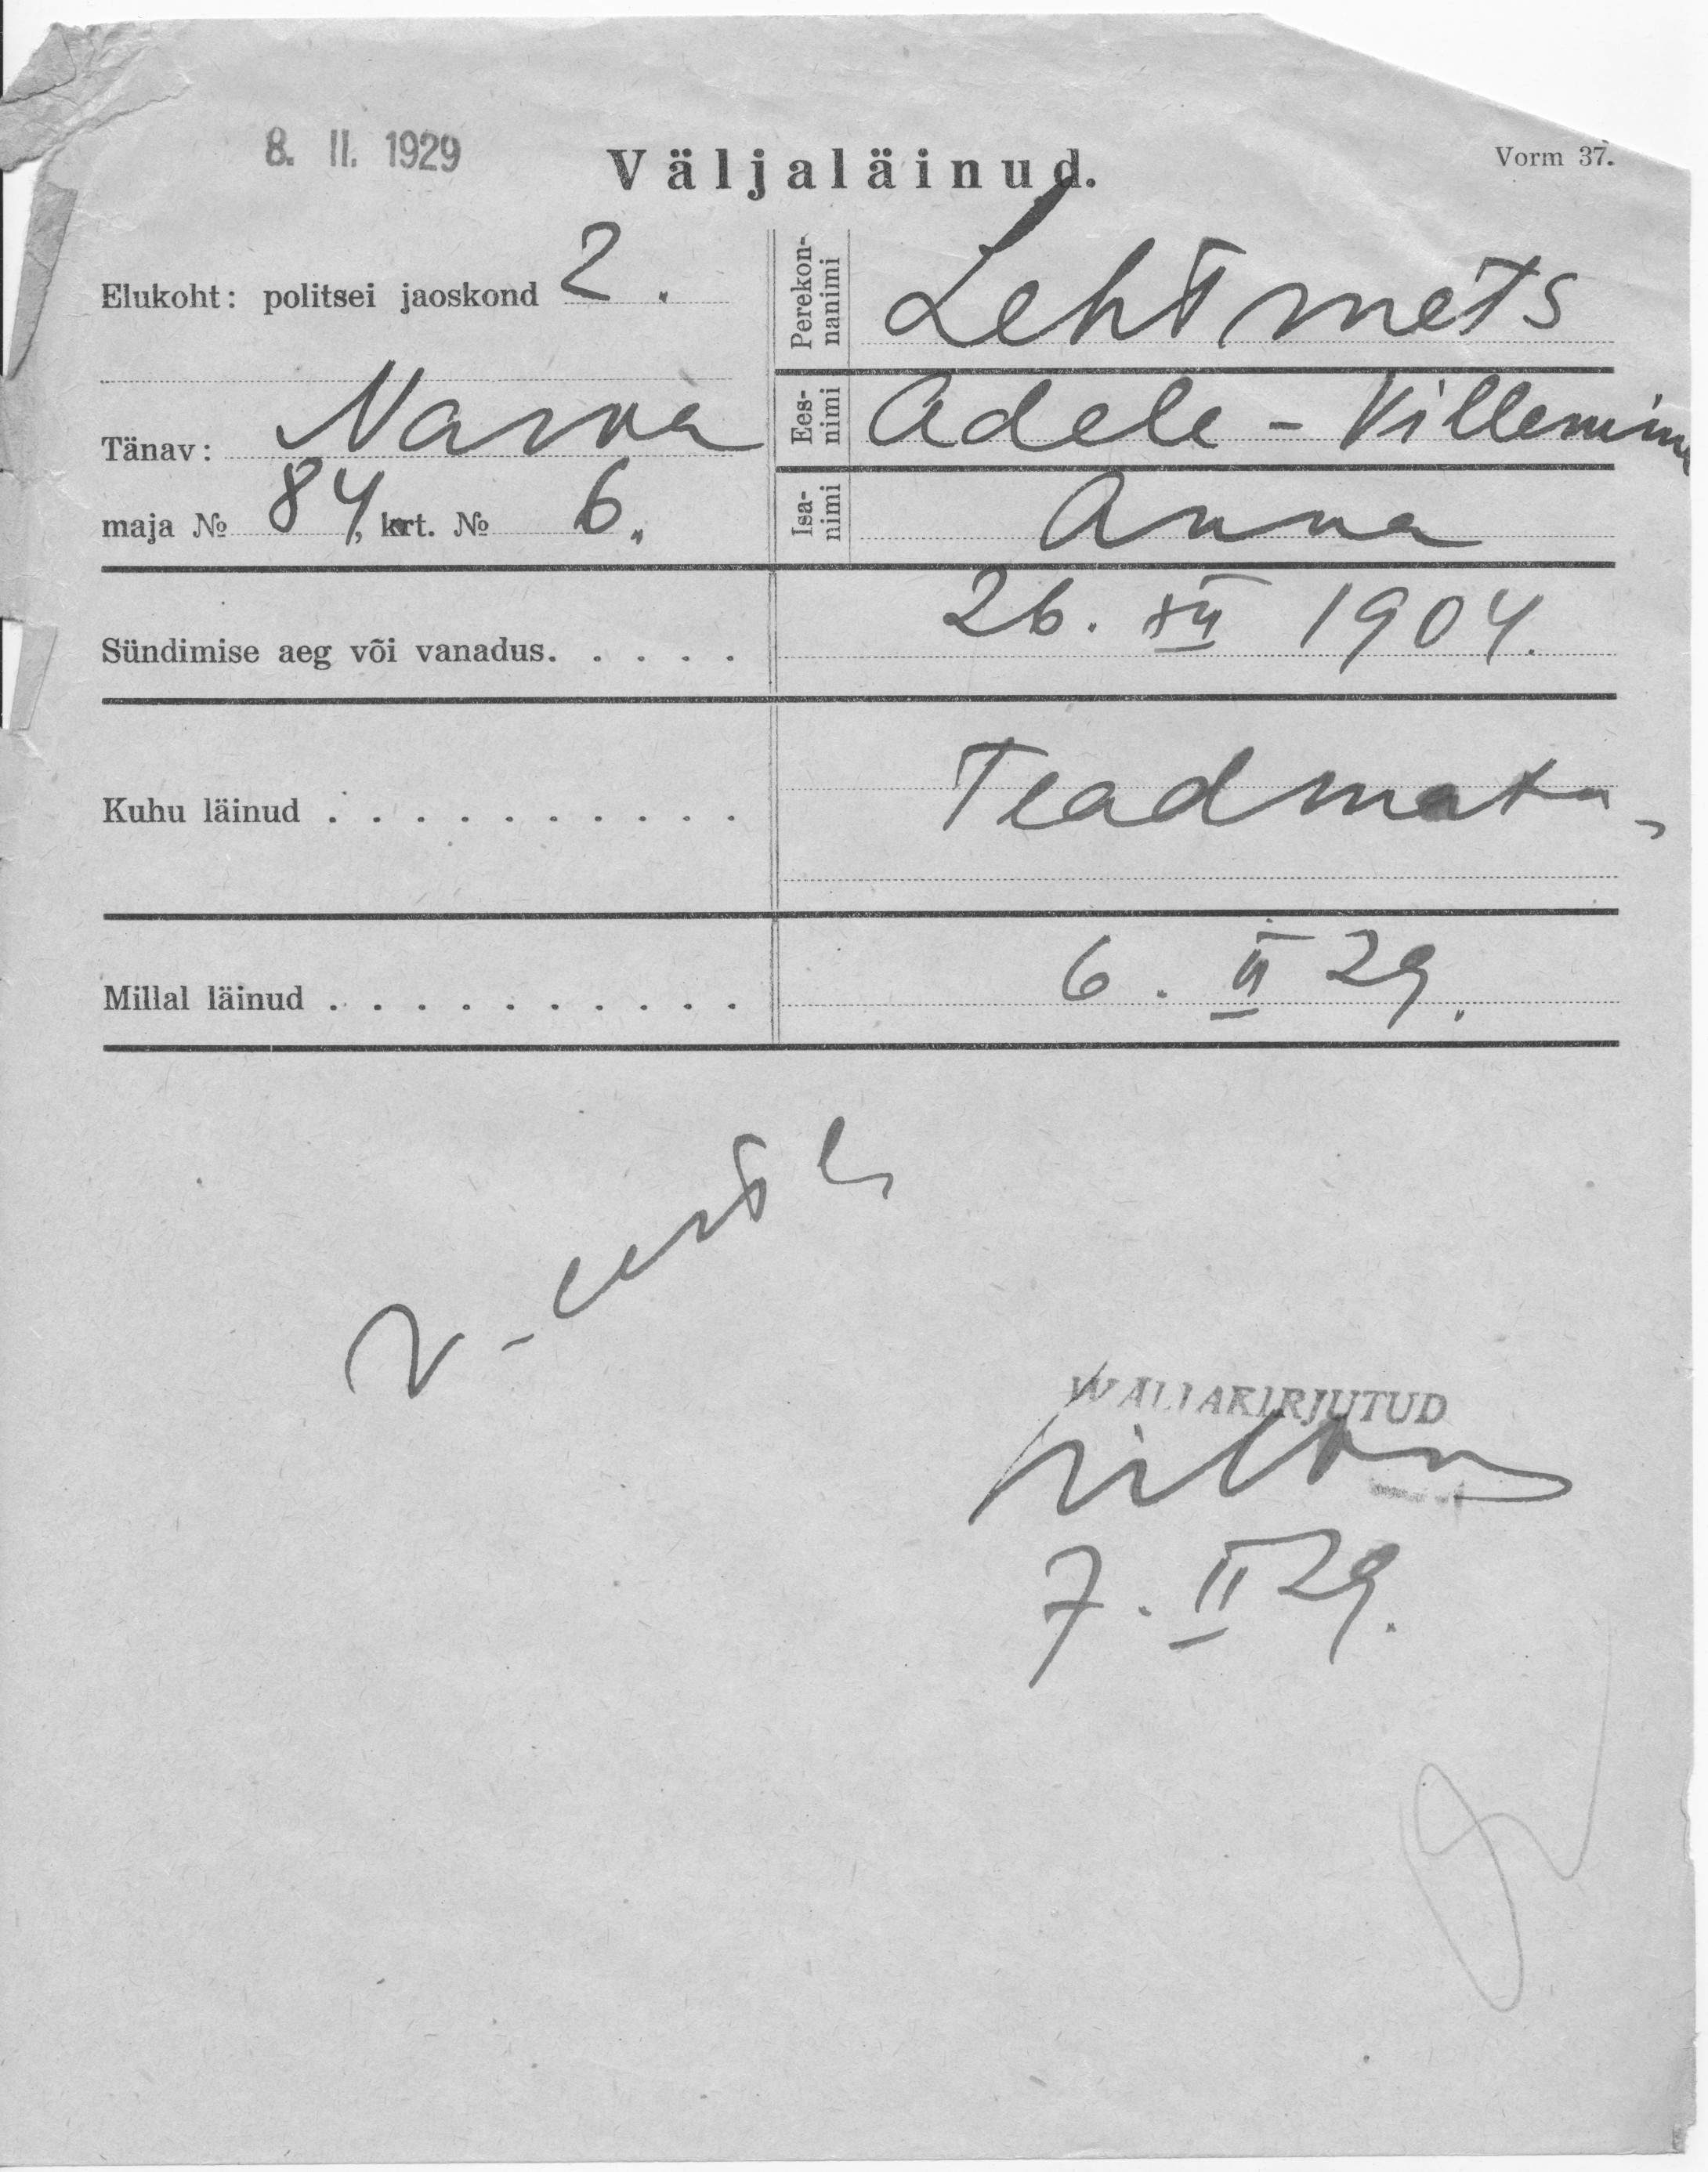 8. II. 1929
Väljaläinud.
Vorm 37.
Elukoht: politsei jaoskond 2.
Tänav: Narva
maja № 84, krt. № 6.
Perekonnanimi Lehtmets
Eesnimi Adele - Villemine
Isanimi Anna
Sündimise aeg või vanadus. . . . . 26. XII 1904.
Kuhu läinud . . . . . . . . . . Teadmata
Millal läinud . . . . . . . . . . 6. II 29.
WÄLJAKIRJUTUD
7. II 29.